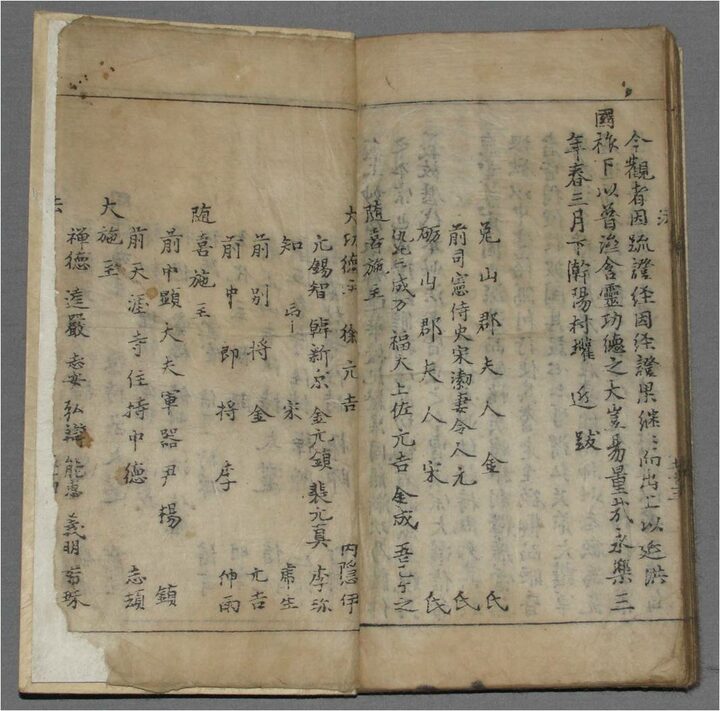 今觀者因疏證経因経證果継〻而出上以延洪
國祚下以普滋含靈功德之大豈易量㢤永樂三
年春三月下澣陽村權近跋
兎山郡夫人金氏
前司憲侍史宋 妻令人元氏
砺山郡夫人宋氏
成万 福大 上佐 元吉 金成
随喜施主
大功德主 徐元吉 内隱伊
元錫智 韓新 金元鎮 裴元真 李
知 宋
前別将金元吉
前中郎将李仲雨
随喜施主
前中顕大夫軍器尹楊鎮
前天涯寺住持中德志頊
大施主
禅德 達嚴 志安 弘 能惠 義明